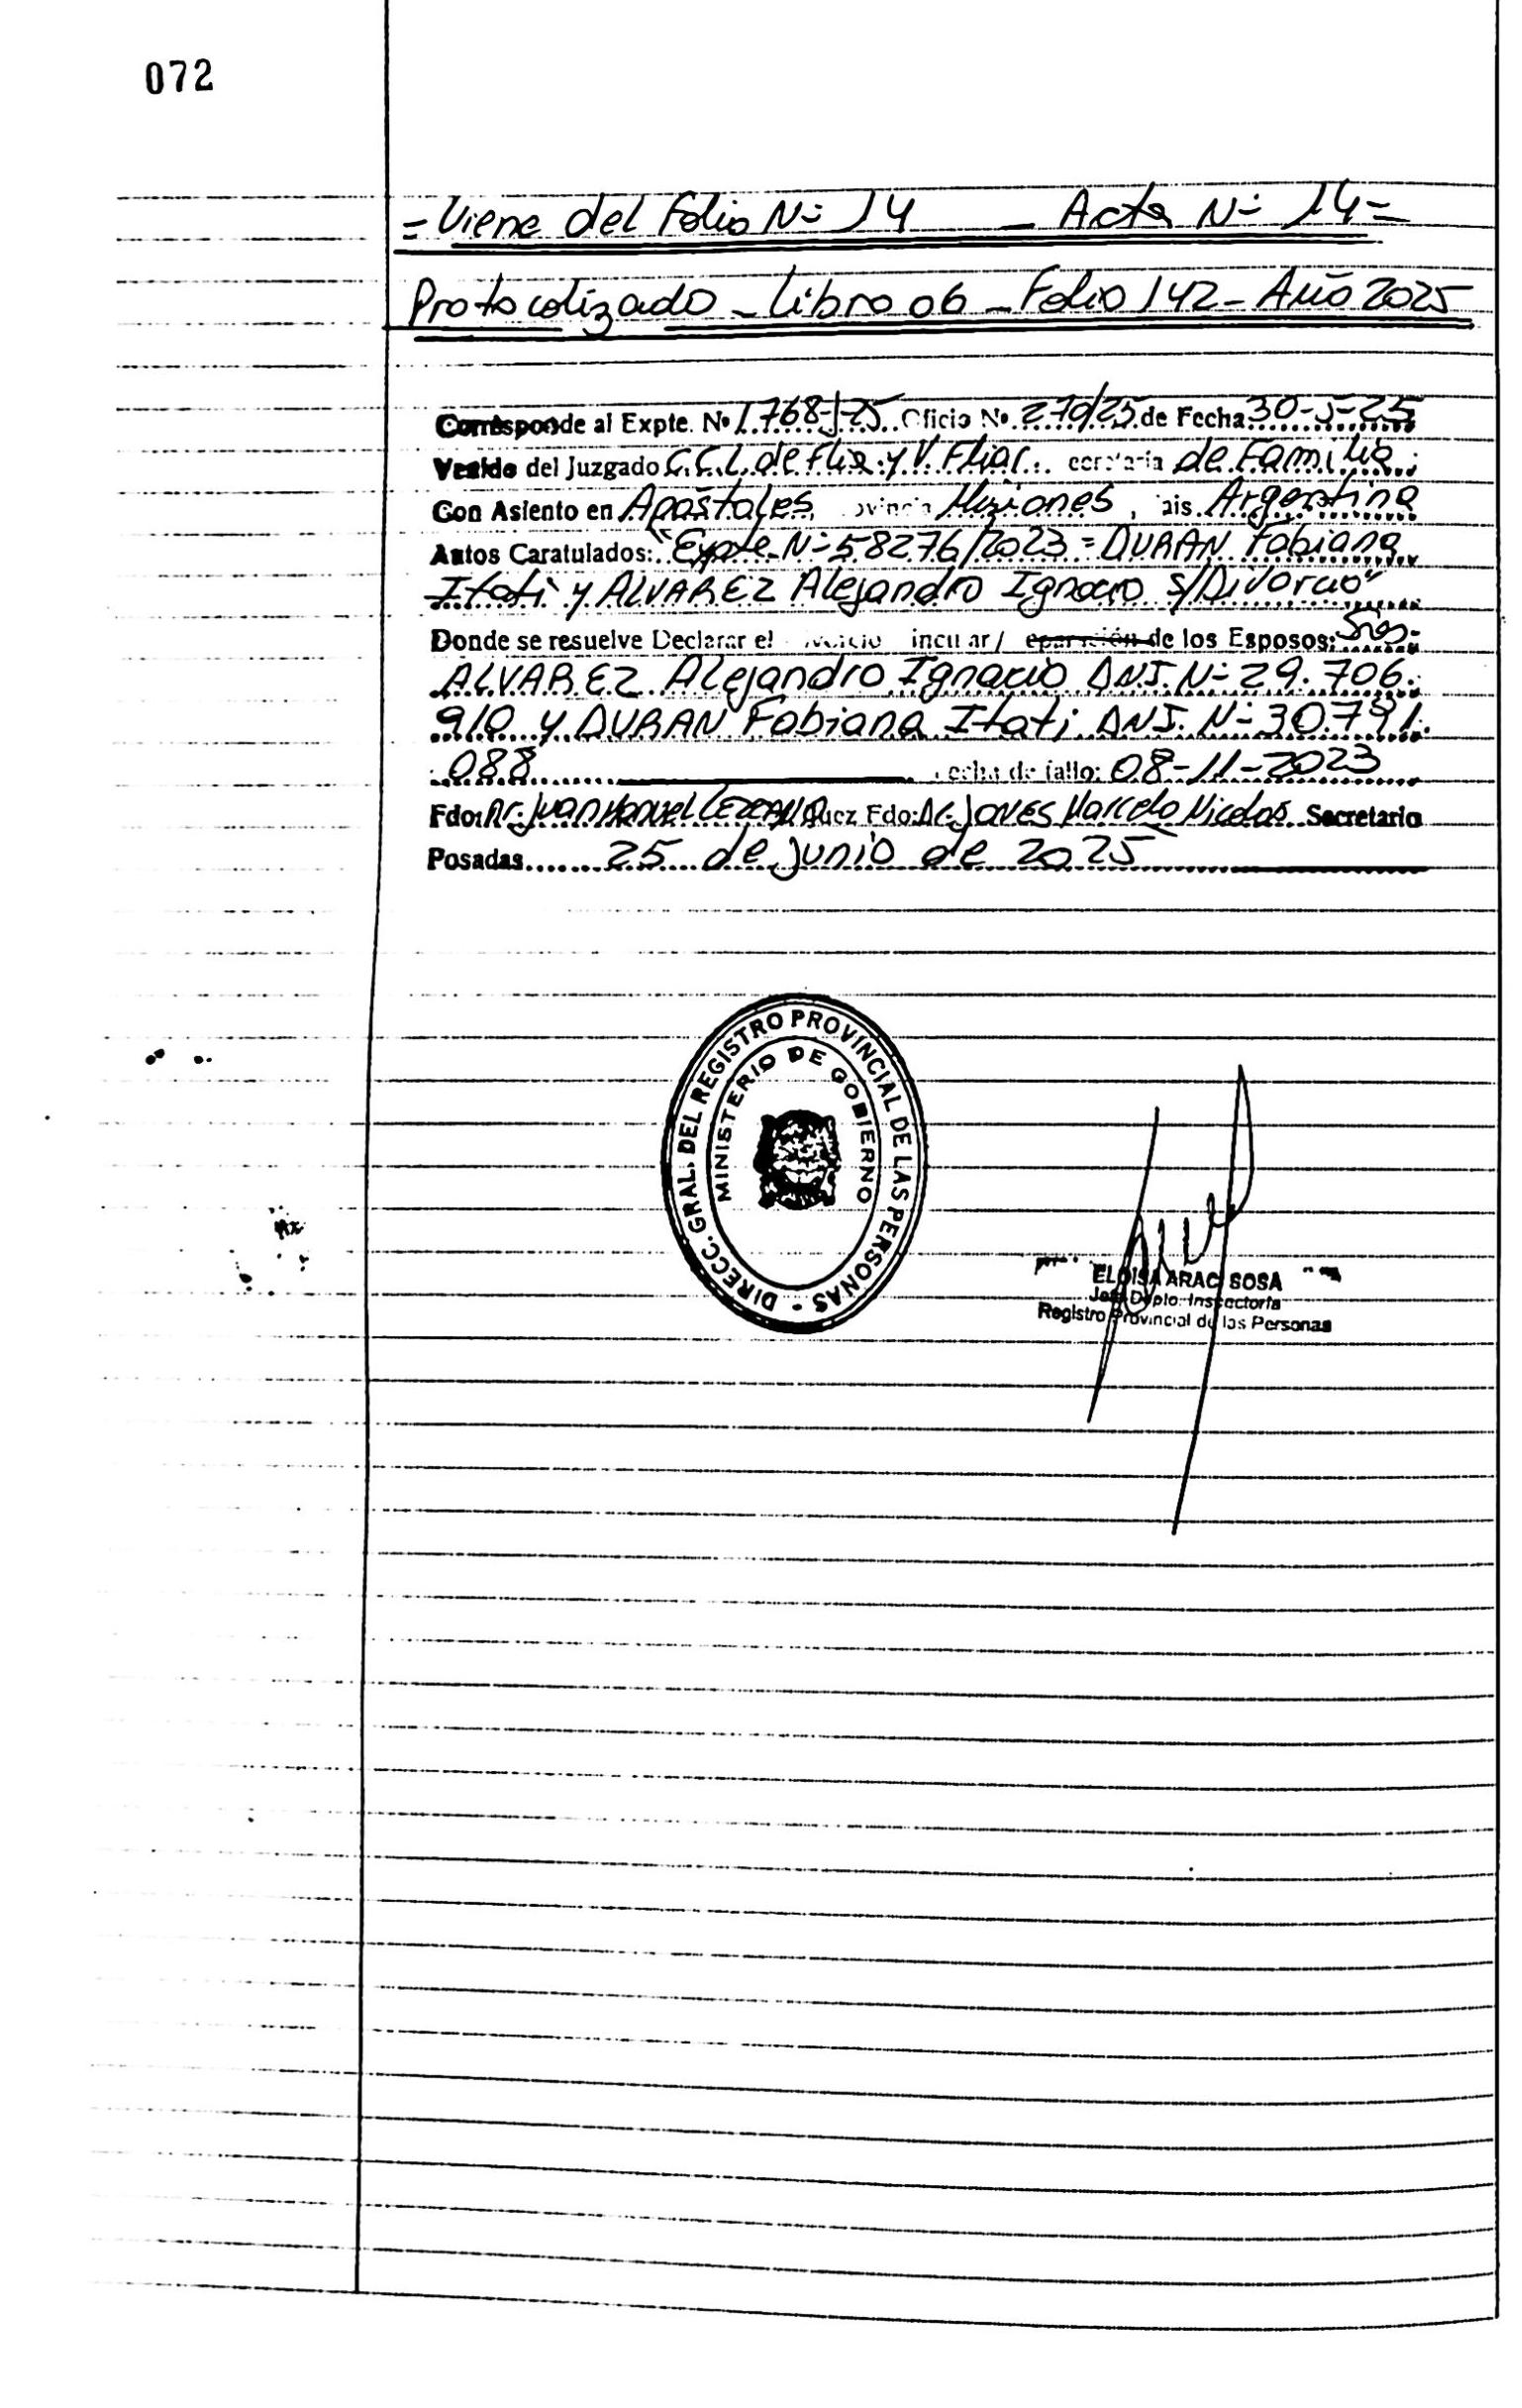 072
= Viene del Folio Nº 14 _ Acta Nº 14 =
Protocolizado _ Libro 06 _ Folio 142 _ Año 2025
Corresponde al Expte. Nº 1768-J-25 Oficio Nº 270/25 de Fecha 30-5-25
Venido del Juzgado C.C.L. de Flia. y V. Fliar. ecretaría de Familia
Con Asiento en Apóstoles, ovincia Misiones, ais Argentina
Autos Caratulados: "Expte Nº 58276/2023 = DURAN Fabiana
Itatí y ALVAREZ Alejandro Ignacio s/Divorcio"
Donde se resuelve Declarar el incular / eparación de los Esposos: Sres.
ALVAREZ Alejandro Ignacio DNI. Nº 29.706.
910 y DURAN Fabiana Itatí DNI. Nº 30.791.
088 echa de fallo: 08-11-2023
Fdo: Dr. Juan Manuel LEZCANO Juez Fdo: Dr. JONES Marcelo Nicolas Secretario
Posadas 25 de junio de 2025
DIRECC. GRAL. DEL REGISTRO PROVINCIAL DE LAS PERSONAS -
MINISTERIO DE GOBIERNO
ELOISA ARACI SOSA
Jefa Dpto. Inspectoría
Registro Provincial de las Personas